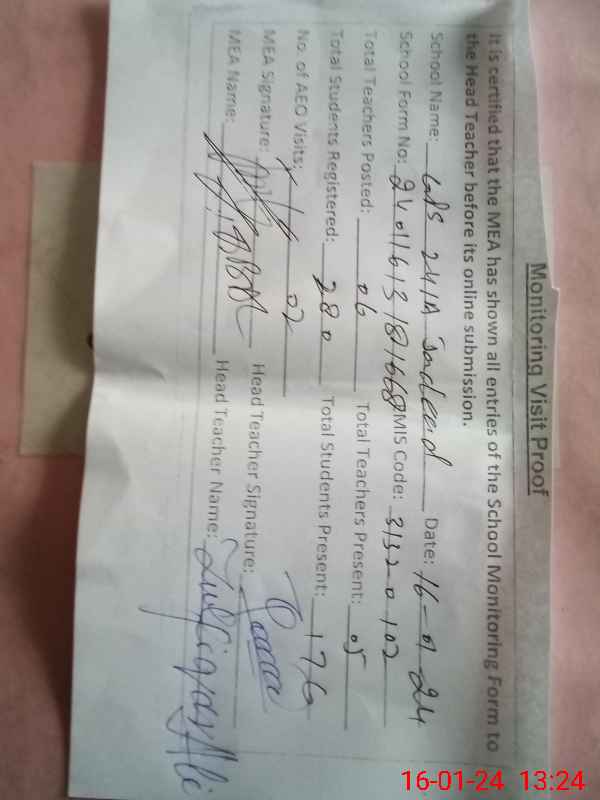 Monitoring Visit Proof
It is certified that the MEA has shown all entries of the School Monitoring Form to
the Head Teacher before its online submission.
School Name: 241A Jadeed Date: 16-01-24
School Form No: MIS Code: 31320102
Total Teachers Posted: 06 Total Teachers Present: 05
Total Students Registered: 280 Total Students Present: 176
No. of AEO Visits: 02
MEA Signature: Head Teacher Signature:
MEA Name: Head Teacher Name: Zulfiqar Ali
16-01-24 13:24